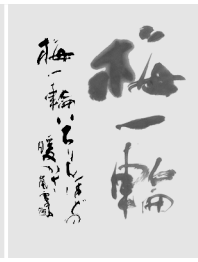 梅一輪
梅一輪
いちりんほどの
暖かさ
嵐雪